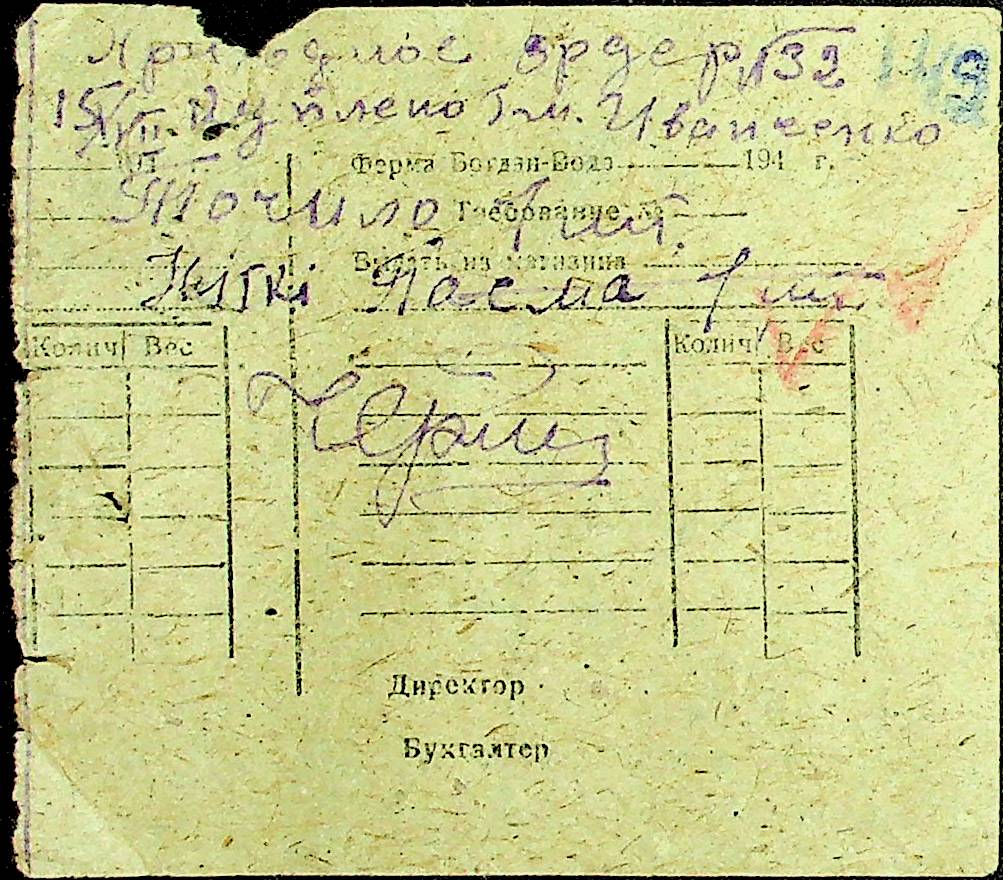 Приходное ордер №32
15/VII. Куплено Гт. Иванченко
Ферма Богдан-Вода 194 г.
Точило 1 шт.
Требование №
Выдать из магазина
Нітки Пасма 1 шт
Колич Вес Колич Вес
Директор
Бухгалтер